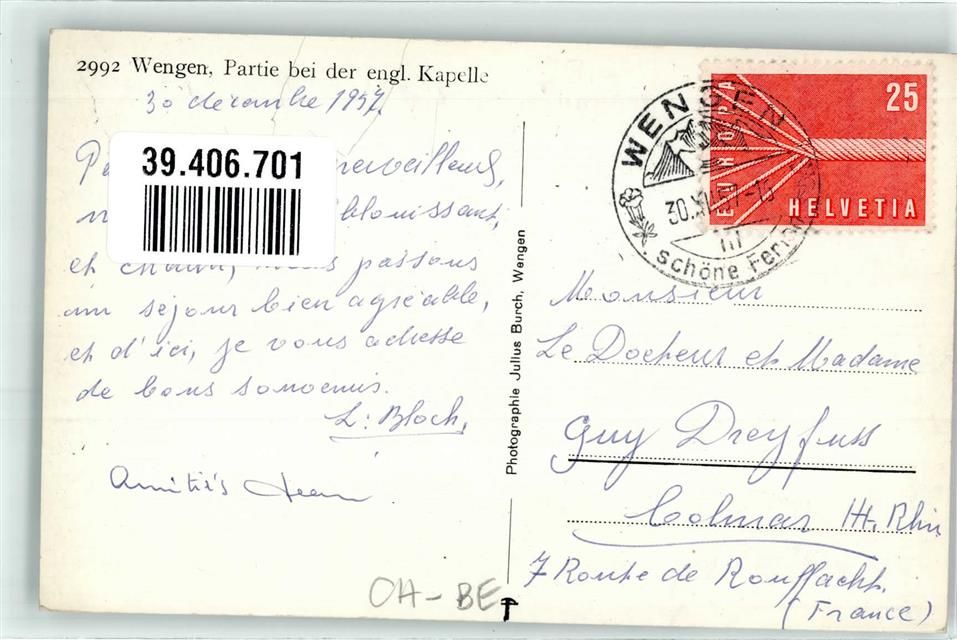 2992 Wengen, Partie bei der engl. Kapelle
30 décembre 1957
39.406.701
merveilleux,
éblouissant,
et chaud, nous passons
un séjour bien agréable,
et d'ici, je vous adresse
de bons souvenirs.
L. Bloch,
Amitiés Jean
OH-BE
Photographie Julius Burch, Wengen
WENGEN
30.XII.57-15
schöne Ferien
EUROPA
25
HELVETIA
Monsieur
Le Docteur et Madame
Guy Dreyfuss
Colmar Ht. Rhin
7 Route de Rouffach.
(France)